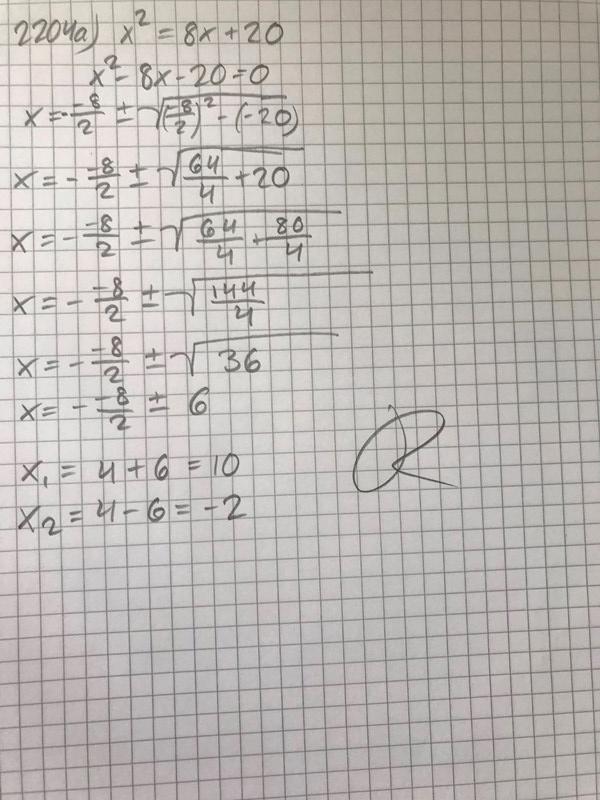 2204a) x² = 8x + 20
x² - 8x - 20 = 0
x = - -8/2 ± √((-8/2)² - (-20))
x = - -8/2 ± √(64/4 + 20)
x = - -8/2 ± √(64/4 + 80/4)
x = - -8/2 ± √(144/4)
x = - -8/2 ± √36
x = - -8/2 ± 6
x₁ = 4 + 6 = 10
x₂ = 4 - 6 = -2
R